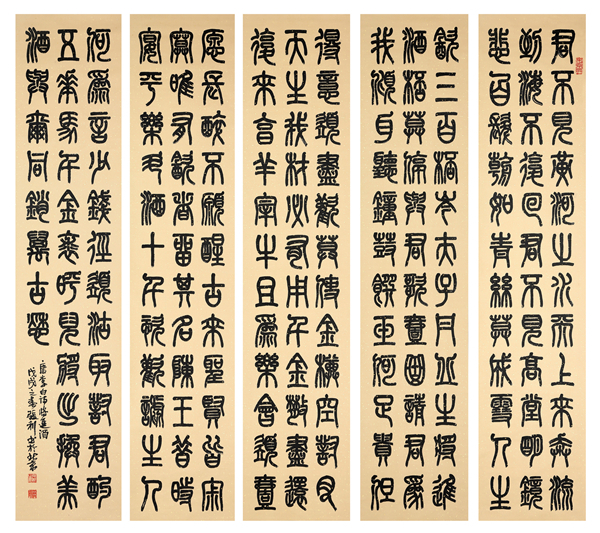 君不見黃河之水天上來奔流
到海不復回君不見高堂明鏡
悲白髮朝如青絲暮成雪人生
飲三百杯岑夫子丹丘生將進
酒杯莫停與君歌壹曲請君為
我傾耳聽鐘鼓饌玉何足貴但
得意須盡歡莫使金樽空對月
天生我材必有用千金散盡還
復來烹羊宰牛且為樂會須壹
願長醉不願醒古來聖賢皆寂
寞唯有飲者留其名陳王昔時
宴平樂斗酒十千恣歡謔主人
何為言少錢徑須沽取對君酌
五花馬千金裘呼兒將出換美
酒與爾同銷萬古愁
唐李白詩將進酒
戊戌之春 書於北京